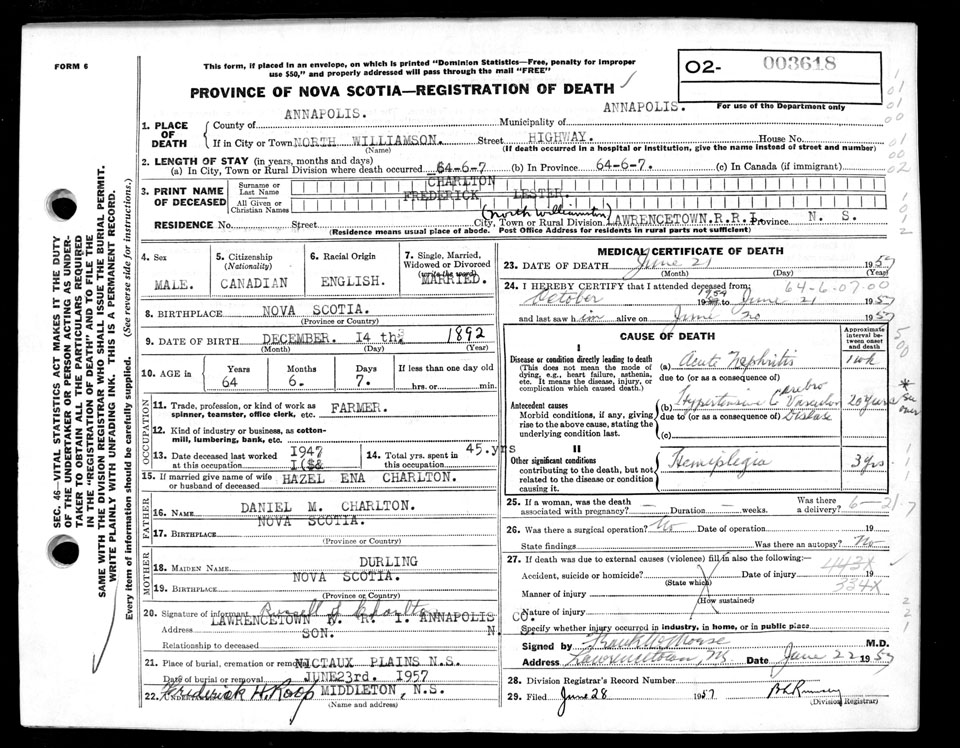 FORM 6
This form, if placed in an envelope, on which is printed "Dominion Statistics—Free, penalty for improper
use $50," and properly addressed will pass through the mail "FREE"
O2- 003618
For use of the Department only
PROVINCE OF NOVA SCOTIA—REGISTRATION OF DEATH
1. PLACE OF DEATH
County of ANNAPOLIS. Municipality of ANNAPOLIS.
If in City or Town NORTH WILLIAMSON. Street HIGHWAY. House No.
(Name) (If death occurred in a hospital or institution, give the name instead of street and number)
2. LENGTH OF STAY (in years, months and days)
(a) In City, Town or Rural Division where death occurred 64-6-7 (b) In Province 64-6-7. (c) In Canada (if immigrant)
3. PRINT NAME OF DECEASED
Surname or Last Name CHARLTON
All Given or Christian Names FREDERICK LESTER.
(North Williamston)
RESIDENCE No. Street City, Town or Rural Division LAWRENCETOWN.R.R.I. Province N. S.
(Residence means usual place of abode. Post Office Address for residents in rural parts not sufficient)
4. Sex
MALE.
5. Citizenship (Nationality)
CANADIAN
6. Racial Origin
ENGLISH.
7. Single, Married, Widowed or Divorced (write the word)
MARRIED.
8. BIRTHPLACE NOVA SCOTIA.
(Province or Country)
9. DATE OF BIRTH DECEMBER. I4 th 1892
(Month) (Day) (Year)
10. AGE in Years Months Days If less than one day old
64 6. 7. hrs. or min.
OCCUPATION
11. Trade, profession, or kind of work as spinner, teamster, office clerk, etc. FARMER.
12. Kind of industry or business, as cotton-mill, lumbering, bank, etc.
13. Date deceased last worked at this occupation 1947
14. Total yrs. spent in this occupation 45.yrs
15. If married give name of wife or husband of deceased HAZEL ENA CHARLTON.
FATHER
16. NAME DANIEL M. CHARLTON.
17. BIRTHPLACE NOVA SCOTIA.
(Province or Country)
MOTHER
18. MAIDEN NAME DURLING
19. BIRTHPLACE NOVA SCOTIA.
(Province or Country)
20. Signature of informant Russell J. Charlton
Address LAWRENCETOWN R. R. I. ANNAPOLIS CO. N.
Relationship to deceased SON.
21. Place of burial, cremation or removal NICTAUX PLAINS N.S.
Date of burial or removal JUNE23rd. I957
22. UNDERTAKER Frederick H. Roop MIDDLETON, N.S.
(Name and address)
MEDICAL CERTIFICATE OF DEATH
23. DATE OF DEATH June 21 1957
(Month) (Day) (Year)
24. I HEREBY CERTIFY that I attended deceased from: 64-6-07.00
October 1954 to June 21 1957
and last saw him alive on June 20 1957
CAUSE OF DEATH
Approximate interval between onset and death
I
Disease or condition directly leading to death (a) Acute Nephritis 1 wk
(This does not mean the mode of dying, e.g., heart failure, asthenia, etc. It means the disease, injury, or complication which caused death.)
due to (or as a consequence of)
Antecedent causes
Morbid conditions, if any, giving rise to the above cause, stating the underlying condition last.
(b) Hypertensive C cerebro Vascular Disease 20 years
due to (or as a consequence of)
(c)
II
Other significant conditions contributing to the death, but not related to the disease or condition causing it.
Hemiplegia 3 yrs.
25. If a woman, was the death associated with pregnancy? — Duration — weeks. Was there a delivery?
6-21-7
26. Was there a surgical operation? No Date of operation 19
State findings Was there an autopsy? No
27. If death was due to external causes (violence) fill in also the following:
443X
Accident, suicide or homicide? (State which) Date of injury 19
334X
Manner of injury (How sustained)
Nature of injury
Specify whether injury occurred in industry, in home, or in public place
Signed by Frank W Morse M.D.
Address Lawrencetown, NS Date June 22 1957
28. Division Registrar's Record Number
29. Filed June 28 1957
(Division Registrar)
SEC. 46—VITAL STATISTICS ACT MAKES IT THE DUTY
OF THE UNDERTAKER OR PERSON ACTING AS UNDER-
TAKER TO OBTAIN ALL THE PARTICULARS REQUIRED
IN THE "REGISTRATION OF DEATH" AND TO FILE THE
SAME WITH THE DIVISION REGISTRAR WHO SHALL ISSUE THE BURIAL PERMIT.
WRITE PLAINLY WITH UNFADING INK. THIS IS A PERMANENT RECORD.
Every item of information should be carefully supplied. (See reverse side for instructions.)